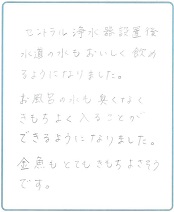 セントラル浄水器設置後
水道の水もおいしく飲め
るようになりました。
お風呂の水も臭くなく
きもちよく入ることが
できるようになりました。
金魚もとてもきもちよさそう
です。